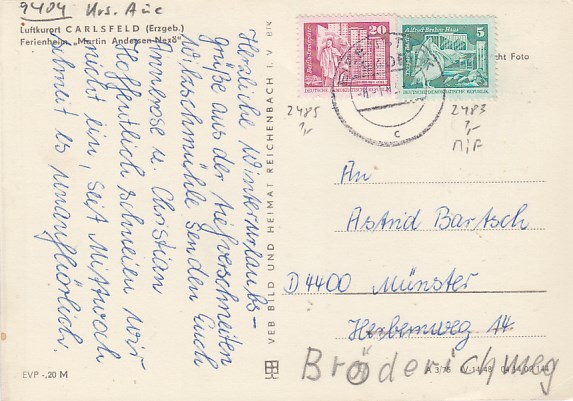 9404 Krs. Aue
Luftkurort CARLSFELD (Erzgeb.)
Ferienheim „Martin Andersen-Nexö"
Herzliche Winterurlaubs-
grüße aus der tiefverschneiten
Weitaschmühle senden Euch
Annerose u. Christian
Hoffentlich schneien wir
nicht ein, seit Mittwoch
schneit es unaufhörlich.
VEB BILD UND HEIMAT REICHENBACH I. V
20
DEUTSCHE DEMOKRATISCHE REPUBLIK
Alfred-Brehm-Haus
5
DEUTSCHE DEMOKRATISCHE REPUBLIK
c
cht Foto
2485
2483
An
Astrid Bartsch
D 4400 Münster
Herbernweg 14
Bröderichweg
EVP -,20 M
A 3/76